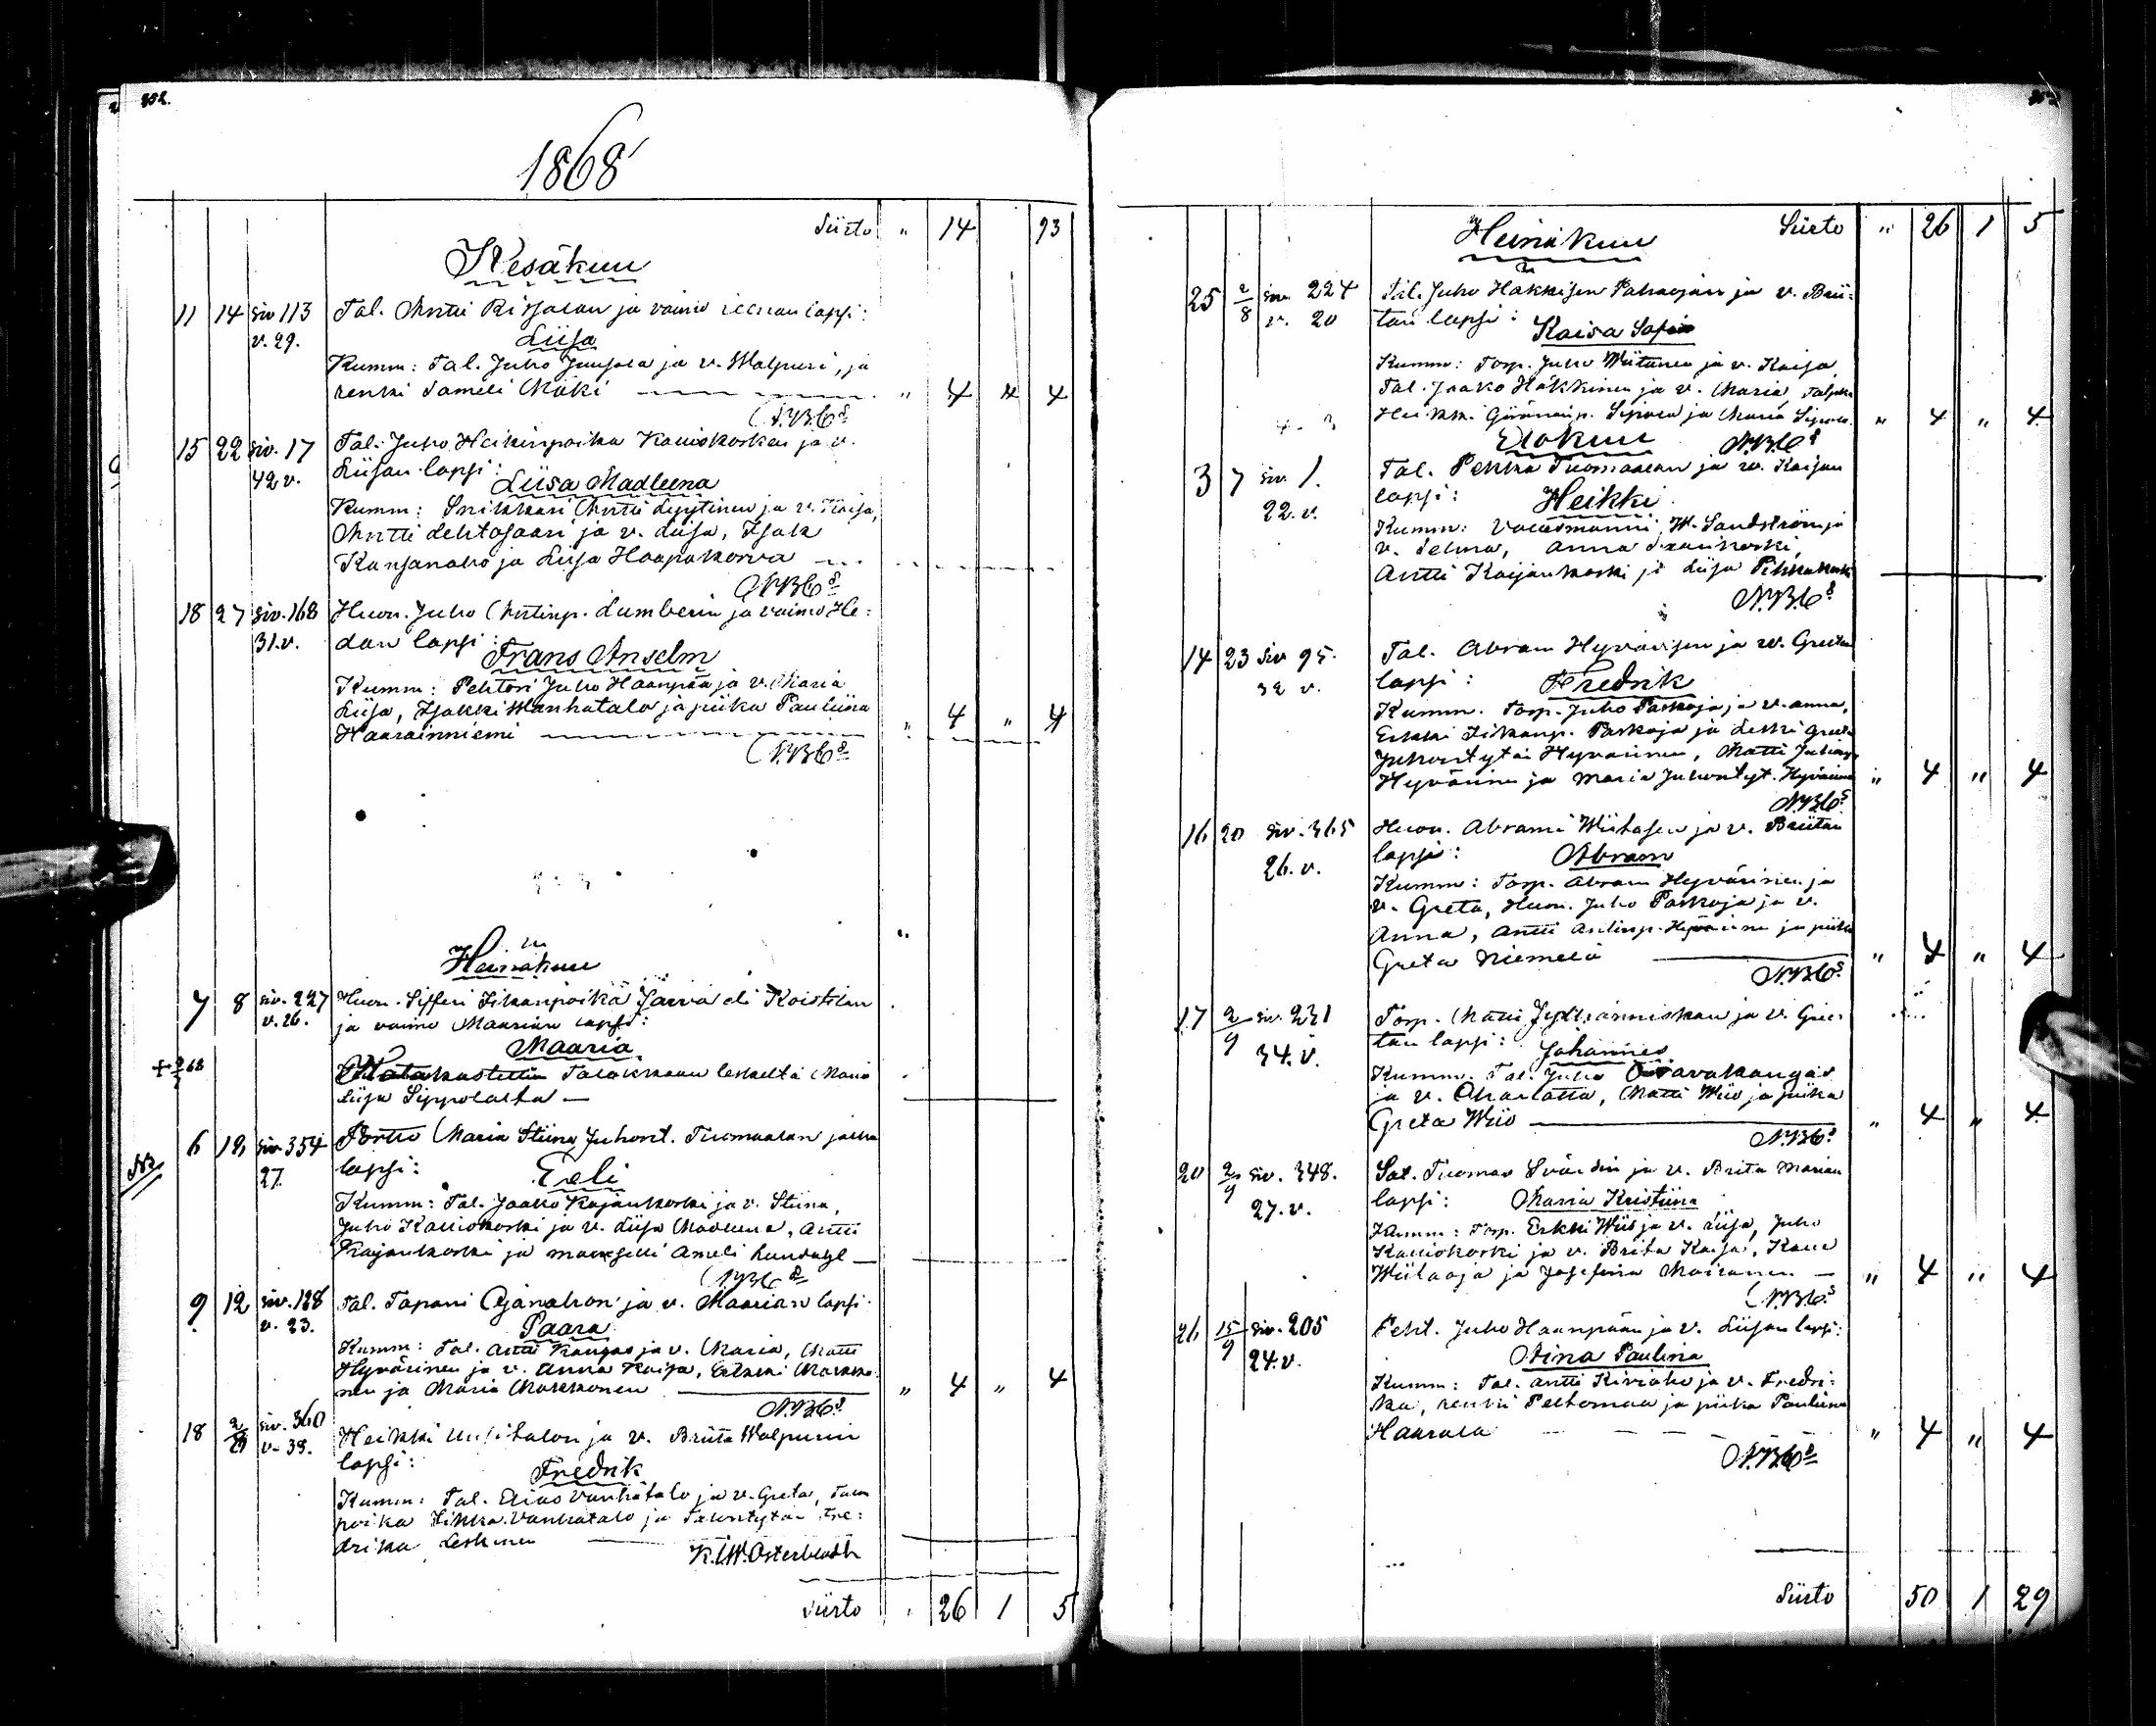 352.
1868
Siirto " 14 93
Kesäkuu
11 14 siv 113 Tal. Antti Rissasen ja vaimo Leenan lapsi:
v. 29. Liisa
Kumm: Tal. Juho Juusola ja v. Walpuri, ja
renki Sameli Mäki " 4 " 4
15 22 siv. 17 Tal. Juho Heikinpoika Kauiskosken ja v.
42 v. Liisan lapsi:
Liisa Madleena
Kumm: Snikkari Antti Lyytinen ja v. Kaisa,
Antti Lehtosaari ja v. Liisa, Isak
Kansanaho ja Liisa Haapakorva
18 27 siv. 168 Huon. Juho Antinp. Lumberin ja vaimo He:
31. v. dan lapsi:
Frans Anselm
Kumm: Pehtori Juho Haanpää ja v. Maria
Liisa, Isakki Wanhatalo ja piika Pauliina
Haarainniemi " 4 " 4
Heinäkuu
7 8 siv. 227 Huon. Sifferi Iikanpoika Järvi eli Koistilan
v. 26. ja vaimo Maarian lapsi:
Maaria
Hätäkastettiin Talokkaan leskeltä Maria
Liisa Sippolalta
6 12 siv 354 Portto Maria Stiina Juhont. Tuomaalan jalka
27. lapsi:
NB
Eeli
Kumm: Tal. Jaako Kajankoski ja v. Stiina,
Juho Kauiskoski ja v. Liisa Madleena, Antti
Kajankoski ja mamselli Ameli
9 12 siv. 128 Tal. Tapani Ojanahon ja v. Maarian lapsi:
v. 23. Saara
Kumm: Tal. Antti Kangas ja v. Maria, Matti
Hyvärinen ja v. Anna Kaisa, Erkki Markko:
nen ja Maria Markkonen " 4 " 4
18 siv. 360 Heikki Uusitalon ja v. Briita Walpurin
v. 38. lapsi:
Fredrik
Kumm: Tal. Elias Vanhatalo ja v. Greta, Talon
poika Iikka Vanhatalo ja Talontytär Fre:
drika Leskinen
K. W. Österbladh
Siirto 26 1 5
Heinäkuu
Siirto " 26 1 5
25 2/8 siv. 224 Tal. Juho Hakkisen Pahaojan ja v. Brii:
v. 20 tan lapsi:
Kaisa Sofia
Kumm: Torp. Juho Wiitanen ja v. Kaisa,
Tal. Jaako Häkkinen ja v. Maria
Sipola ja Maria Sipola " 4 " 4
Elokuu
3 7 siv. 1. Tal. Pekka Tuomaalan ja v. Kaisan
22. v. lapsi:
Heikki
Kumm: W. Sandström ja
v. Selma, Anna
Antti Kaijankoski ja Liisa
14 23 siv 95. Tal. Abram Hyvärisen ja v. Gretan
32 v. lapsi:
Fredrik
Kumm. Torp. Juho Paskoja ja v. Anna,
Erkki Iikanp. Paskoja ja Leski Greta
Juhontytär Hyvärinen, Matti Juhonp.
Hyvärinen ja Maria Juhontyt. Hyvärinen " 4 " 4
16 20 siv. 365 Huon. Abrami Wiitasen ja v. Briitan
26. v. lapsi:
Abram
Kumm: Torp. Abram Hyvärinen ja
v. Greta, Huon. Juho Paskoja ja v.
Anna, Antti Antinp. Hyvärinen ja piika
Greta Niemelä " 4 " 4
17 2/9 siv. 231 Torp. Matti Jylhänniskan ja v. Gree:
34. v. tan lapsi:
Johannes
Kumm. Tal. Juho Oravakangas
ja v. Charlotta, Matti Wiio ja piika
Greta Wiio " 4 " 4
20 2/9 siv. 348. Sot. Tuomas Svärdin ja v. Brita Marian
27. v. lapsi:
Maria Kristiina
Kumm: Torp. Erkki Wiio ja v. Liisa, Juho
Kauiskoski ja v. Brita Kaisa, Kalle
Wiitaoja ja Josefina Moisanen " 4 " 4
26 15/9 siv. 205 Peht. Juho Haanpään ja v. Liisan lapsi:
24. v. Stina Paulina
Kumm: Tal. Antti Kiviaho ja v. Fredri:
ka, renki Peltomaa ja piika Pauliina
Haarala " 4 " 4
Siirto 50 1 29